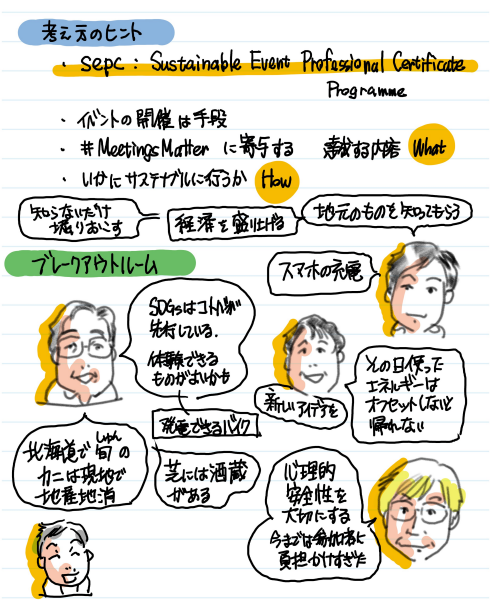 考え方のヒント
・sepc : Sustainable Event Professional Certificate
Programme
・イベントの開催は手段
・#MeetingsMatter に寄与する 達成する内容 What
・いかにサステナブルに行うか How
知らないだけ
掘りおこす
経済を盛り上げる
地元のものを知ってもらう
ブレークアウトルーム
スマホの充電
SDGsはコトバが
先行している.
体験できる
ものがよいかも
新しいアイデアを
その日使った
エネルギーは
オフセットしないと
帰れない
発電できるバイク
北海道で旬の
しゅん
カニは現地で
地産地消
芝には酒蔵
がある
心理的
安全性を
大切にする
今までは参加者に
負担かけすぎた